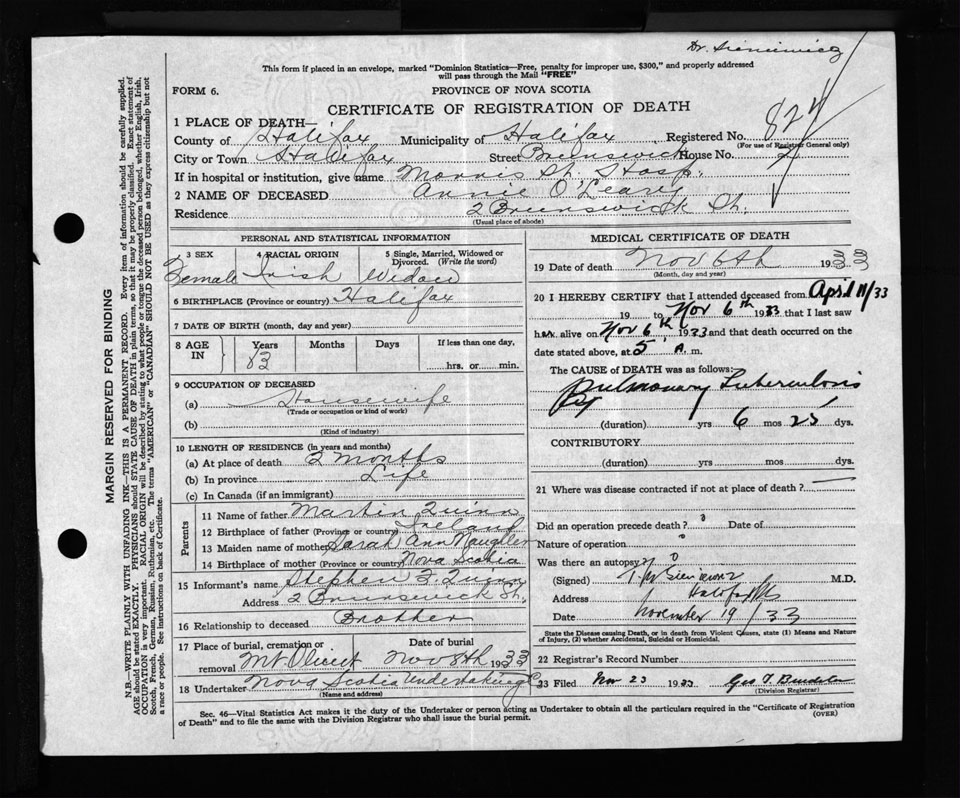 Dr.
This form if placed in an envelope, marked "Dominion Statistics—Free, penalty for improper use, $300," and properly addressed
will pass through the Mail "FREE"
FORM 6.
PROVINCE OF NOVA SCOTIA
CERTIFICATE OF REGISTRATION OF DEATH
1 PLACE OF DEATH—
County of Halifax Municipality of Halifax Registered No. 824
(For use of Registrar General only)
City or Town Halifax Street Brunswick House No. 2
If in hospital or institution, give name Morris St. Hosp.
2 NAME OF DECEASED Annie O'Leary
Residence 2 Brunswick St.
(Usual place of abode)
PERSONAL AND STATISTICAL INFORMATION
3 SEX 4 RACIAL ORIGIN 5 Single, Married, Widowed or Divorced. (Write the word)
Female Irish Widow
6 BIRTHPLACE (Province or country) Halifax
7 DATE OF BIRTH (month, day and year)
8 AGE IN Years Months Days If less than one day,
hrs. or min.
9 OCCUPATION OF DECEASED
(a) Housewife
(Trade or occupation or kind of work)
(b)
(Kind of industry)
10 LENGTH OF RESIDENCE (in years and months)
(a) At place of death 2 months
(b) In province Life
(c) In Canada (if an immigrant)
Parents
11 Name of father Martin Quinn
12 Birthplace of father (Province or country) Ireland
13 Maiden name of mother Sarah Ann Naugler
14 Birthplace of mother (Province or country) Nova Scotia
15 Informant's name Stephen J. Quinn
Address 2 Brunswick St.
16 Relationship to deceased Brother
17 Place of burial, cremation or removal Mt Olivet
Date of burial Nov 8th 1933
18 Undertaker Nova Scotia Undertaking Co
(Name and address)
MEDICAL CERTIFICATE OF DEATH
19 Date of death Nov 6th 1933
(Month, day and year)
20 I HEREBY CERTIFY that I attended deceased from April 11/33
19 to Nov 6th 1933 that I last saw
her alive on Nov 6th 1933 and that death occurred on
date stated above, at 5 A. m.
The CAUSE OF DEATH was as follows:
Pulmonary Tuberculosis
(duration) yrs 6 mos 25 dys.
CONTRIBUTORY
(duration) yrs mos dys.
21 Where was disease contracted if not at place of death?
Did an operation precede death? Date of
Nature of operation
Was there an autopsy?
(Signed) M.D.
Address Halifax NS
Date November 19/33
State the Disease causing Death, or in death from Violent Causes, state (1) Means and Nature
of Injury, (2) whether Accidental, Suicidal or Homicidal.
22 Registrar's Record Number
23 Filed Nov 23 1933
(Division Registrar)
Sec. 46—Vital Statistics Act makes it the duty of the Undertaker or person acting as Undertaker to obtain all the particulars required in the "Certificate of Registration
of Death" and to file the same with the Division Registrar who shall issue the burial permit.
(OVER)
MARGIN RESERVED FOR BINDING
N.B.—WRITE PLAINLY WITH UNFADING INK—THIS IS A PERMANENT RECORD. Every item of information should be carefully supplied.
AGE should be stated EXACTLY. PHYSICIANS should STATE CAUSE OF DEATH in plain terms, so that it may be properly classified. Exact statement of
OCCUPATION is very important. RACIAL ORIGIN will be described by stating to what people or tongue the deceased person belonged, whether English, Irish,
Scotch, French, German, Russian, Ruthenian, etc. The terms "AMERICAN" or "CANADIAN" SHOULD NOT BE USED as they express citizenship but not
a race or people. See instructions on back of Certificate.